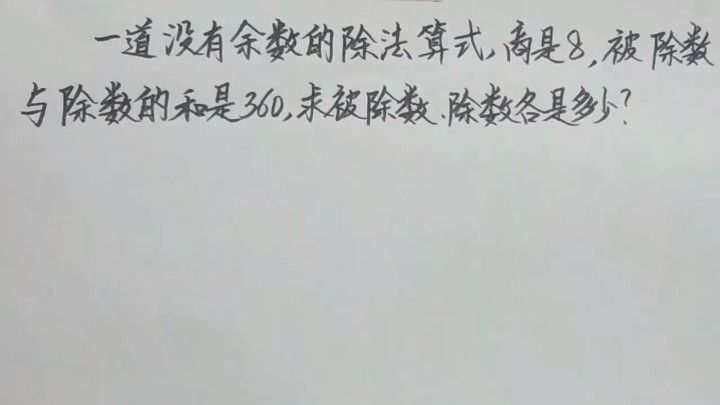 一道没有余数的除法算式,商是8,被除数
与除数的和是360,求被除数、除数各是多少?